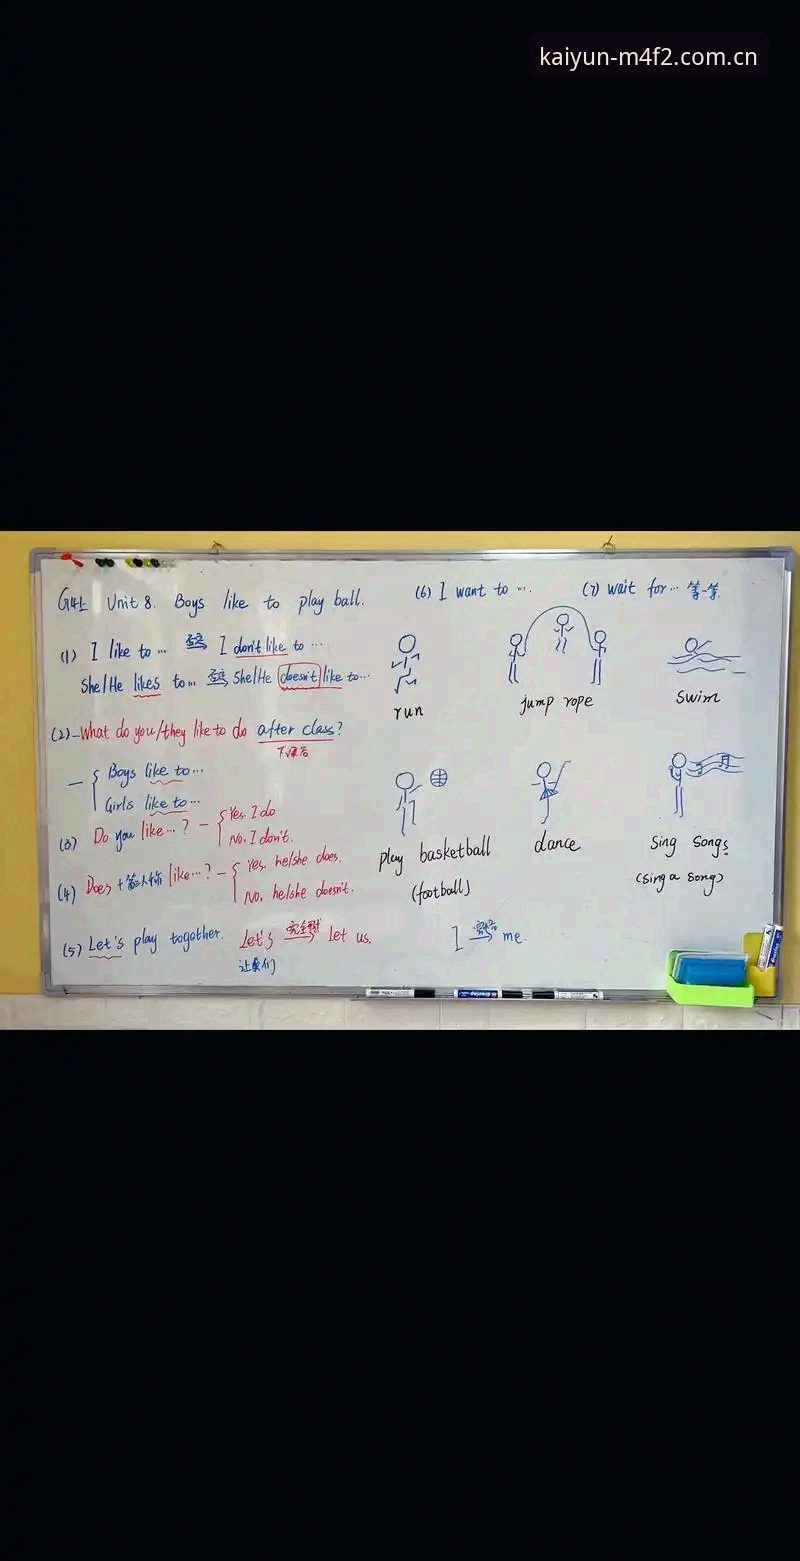 kaiyun-m4f2.com.cn
G4上 Unit 8. Boys like to play ball.
(1) I like to … 否定 I don't like to …
She/He likes to… 否定 She/He doesn't like to…
(2) - What do you/they like to do after class?
下课后
— Boys like to…
Girls like to…
(3) Do you like…? — Yes. I do
No. I don't.
(4) Does + 第三人称 like…? — Yes. he/she does.
No. he/she doesn't.
(5) Let's play together. Let's 完全形式 Let us.
让我们
I 宾格 me.
(6) I want to ….
(7) wait for … 等一等.
run
jump rope
swim
play basketball
(football)
dance
sing songs
(sing a song)